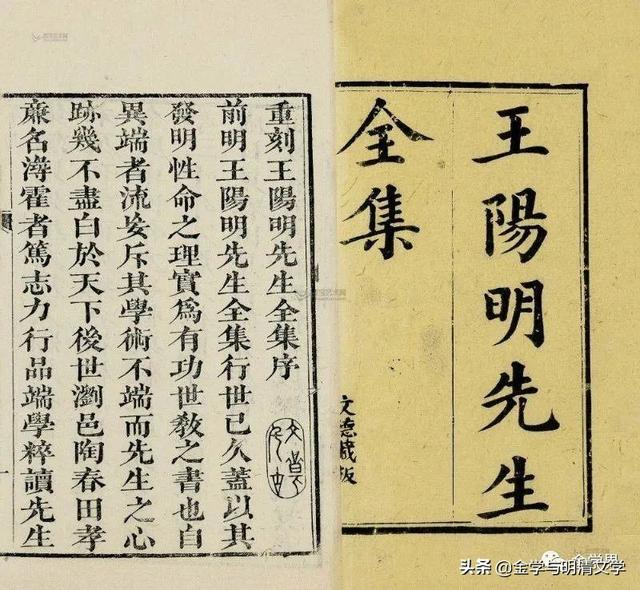 王陽明先生
全集
文德藏板
重刻王陽明先生全集序
前明王陽明先生全集行世已久蓋以其
發明性命之理實爲有功世敎之書也自
異端者流妄斥其學術不端而先生之心
跡幾不盡白於天下後世瀏邑陶春田孝
廉名潯霍者篤志力行品端學粹讀先生
金学界
头条 @金学与明清文学